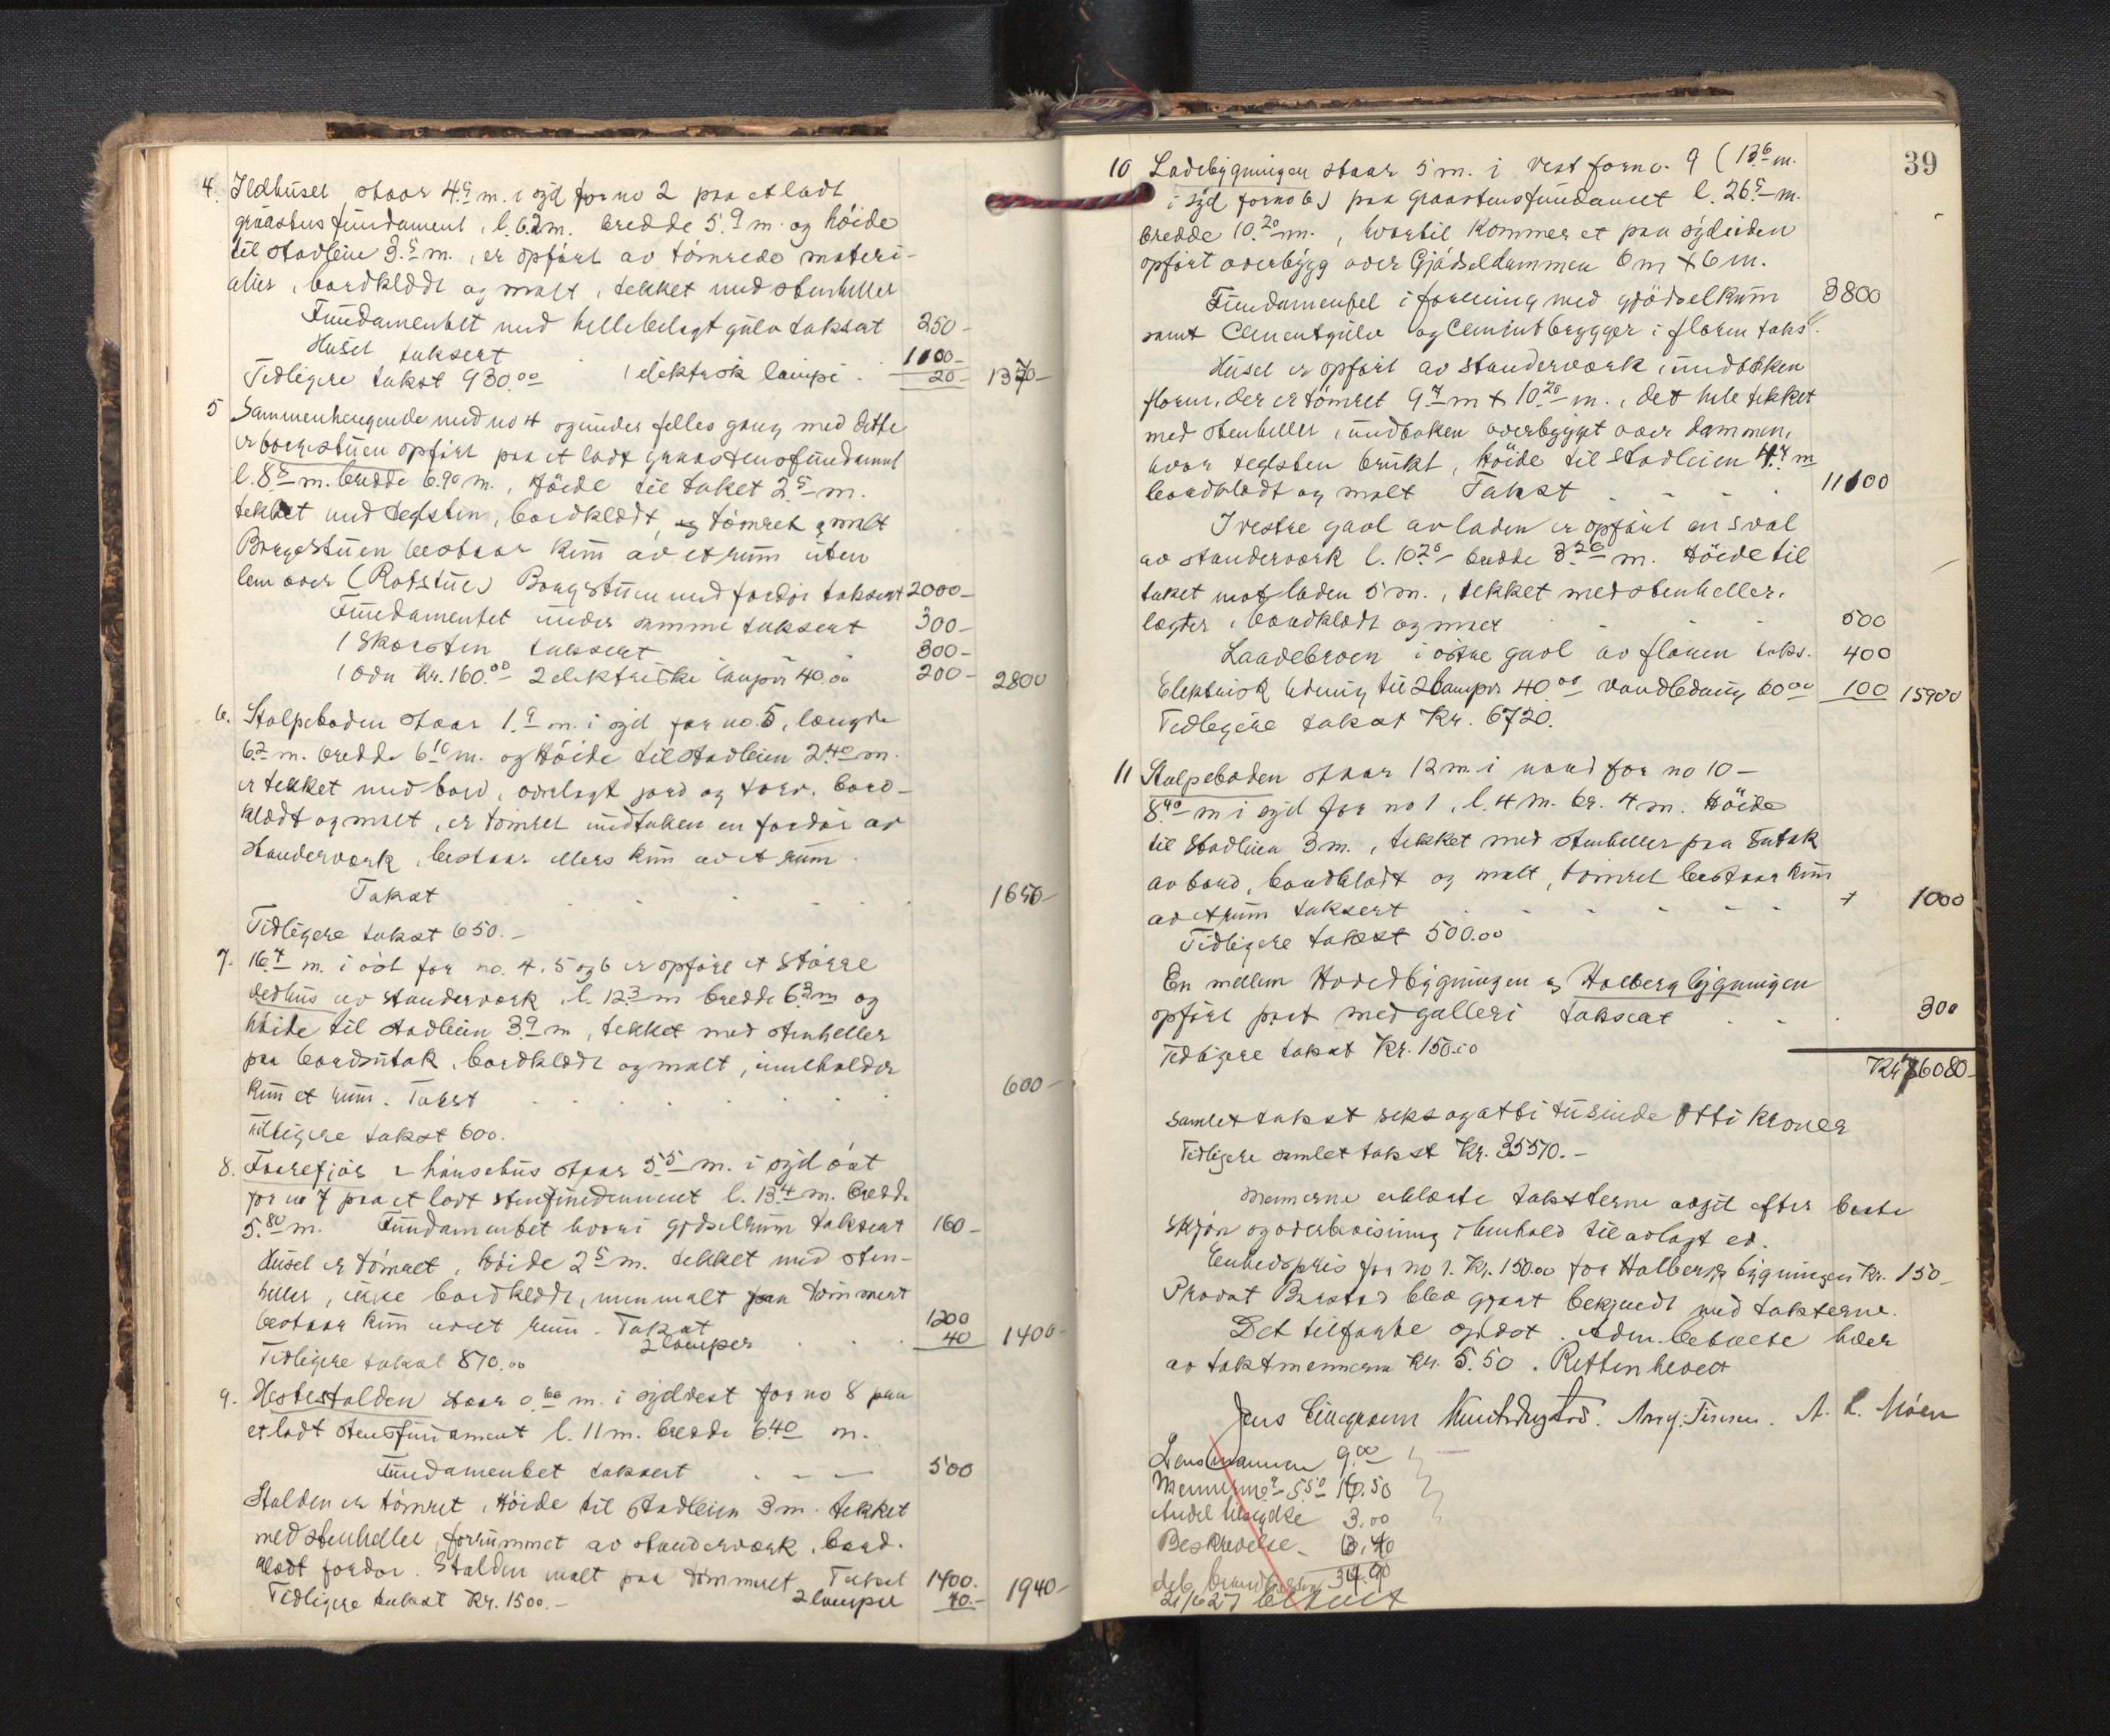 4. Ildhuset staar 4.9 m. i syd for no 2 paa et ladt
graastens fundament, l. 6.2 m. bredde 5.9 m. og høide
til stavleien 3.5 m., er opført av tømrede materi-
alier, bordklædt og malt, tekket med stenheller
Fundamentet med hellebelagt gulv taksert 250-
Huset taksert 1100-
Tidligere takst 930.00 1 elektrisk lampe. 20- 1370-
5 Sammenhengende med no 4 og under felles gang med dette
er borgestuen opført paa et ladt graastensfundament
l. 8.5 m. bredde 6.90 m., Høide til taket 2.5 m.
tekket med teglsten, bordklædt, og tømret & malt
Borgestuen bestaar kun av et rum uten
lem over (Røtstue) Borgstuen med fordør taksert 2000-
Fundamentet under samme taksert 300-
1 Skorsten taksert 300-
1 ovn Kr. 160.00 2 elektriske lamper 40.00 200- 2800
6. Stolpeboden staar 1.9 m. i syd for no. 5, længde
6.2 m. bredde 6.10 m. og Høide til stavleien 2.40 m.
er tekket med bord, overlagt jord og torv. bord-
klædt og malt, er tømret undtaken en fordør av
standerverk, bestaar ellers kun av et rum.
Takst 1650-
Tidligere takst 650.-
7. 16.4 m. i øst for no. 4, 5 og 6 er opført et større
vedhus av standerverk, l. 12.3 m bredde 6.3 m og
høide til stavleien 3.9 m, tekket med stenheller
paa bordsutak, bordklædt og malt, inneholder
kun et rum. Takst 600-
Tidligere takst 600.
8. Faarefjøs & hønsehus staar 5.5 m. i syd øst
for no 7 paa et ladt stenfundament l. 13.4 m. bredde
5.80 m. Fundamentet hvori gjødselrum taksert 160-
Huset er tømret, høide 2.5 m. tekket med sten-
heller, ikke bordklædt, men malt paa tømmeret
bestaar kun av et rum. Takst 1200
2 lamper 40 1400-
Tidligere takst 870.00
9. Hestestalden staar 0.60 m. i sydvest for no 8 paa
et ladt stensfundament l. 11 m. bredde 6.40 m.
Fundamentet taksert 500
Stalden er tømret, Høide til stavleien 3 m. tekket
med stenheller, forrummet av standerværk, bord-
klædt fordør. Stalden malt paa tømmeret Takst 1400.
Tidligere takst Kr. 1500.- 2 lamper 40.- 1940-
39
10 Ladebygningen staar 5 m. i vest for no. 9 (13.6 m.
i syd for no 6) paa graastensfundament l. 26.5 m.
bredde 10.20 m., hvortil kommer et paa sydsiden
opført overbygg over Gjødseldammen 6 m x 6 m.
Fundamentet i forening med gjødselkum 3800
samt Cementgulv og Cementbrygger i floren taks.
Huset er opført av standerværk, undtaken
floren, der er tømret 9.7 m x 10.20 m., det hele tekket
med stenheller, undtaken overbygget over dammen,
hvor teglsten brukt, Høide til stavleien 4.4 m
bordklædt og malt Takst 11100
I vestre gavl av laden er opført en sval
av standerværk l. 10.20 bredde 3.20 m. Høide til
taket mot laden 5 m., tekket med stenheller.
lægter, bordklædt og malt 500
Laadebroen i østre gavl av floren taks. 400
Elektrisk ledning til 2 lamper 40.00 vandledning 60.00 100 15900
Tidligere takst Kr. 6720.
11 Stolpeboden staar 12 m. i nord for no 10 -
8.40 m i syd for no 1, l. 4 m. br. 4 m. Høide
til stavleien 3 m., tekket med stenheller paa Sutak
av bord, bordklædt og malt, tømret bestaar kun
av et rum taksert + 1000
Tidligere takst 500.00
En mellem Hovedbygningen og Holberg bygningen
opført port med galleri taksert 300
Tidligere takst Kr. 150.00
Kr 76080-
Samlet takst seks og otti tusinde otti Kroner
Tidligere samlet takst Kr. 35570.-
Mennerne erklærte taksterne avgit efter beste
skjøn og overbevisning i henhold til avlagt ed.
Enhedspris for no 1. Kr. 150.00 for Holbergs bygningen Kr. 150-
Provst Barstad blev gjort bekjendt med taksterne.
Det tilførte oplæst. Adm. bebælte hver
av takstmennerne Kr. 5.50. Retten hevet
Arng. Finnen. A. L. Moen
Lensmannen 9.00
Mennerne 5.50 16.50
Andel tilsyd 3.00
Beskrivelse 6.40
34.90
21/6 27 betalt